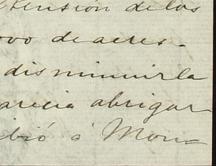 tensión de los
ovo de aeres.
disminuirla
arecia abrigar
ibió á Mon